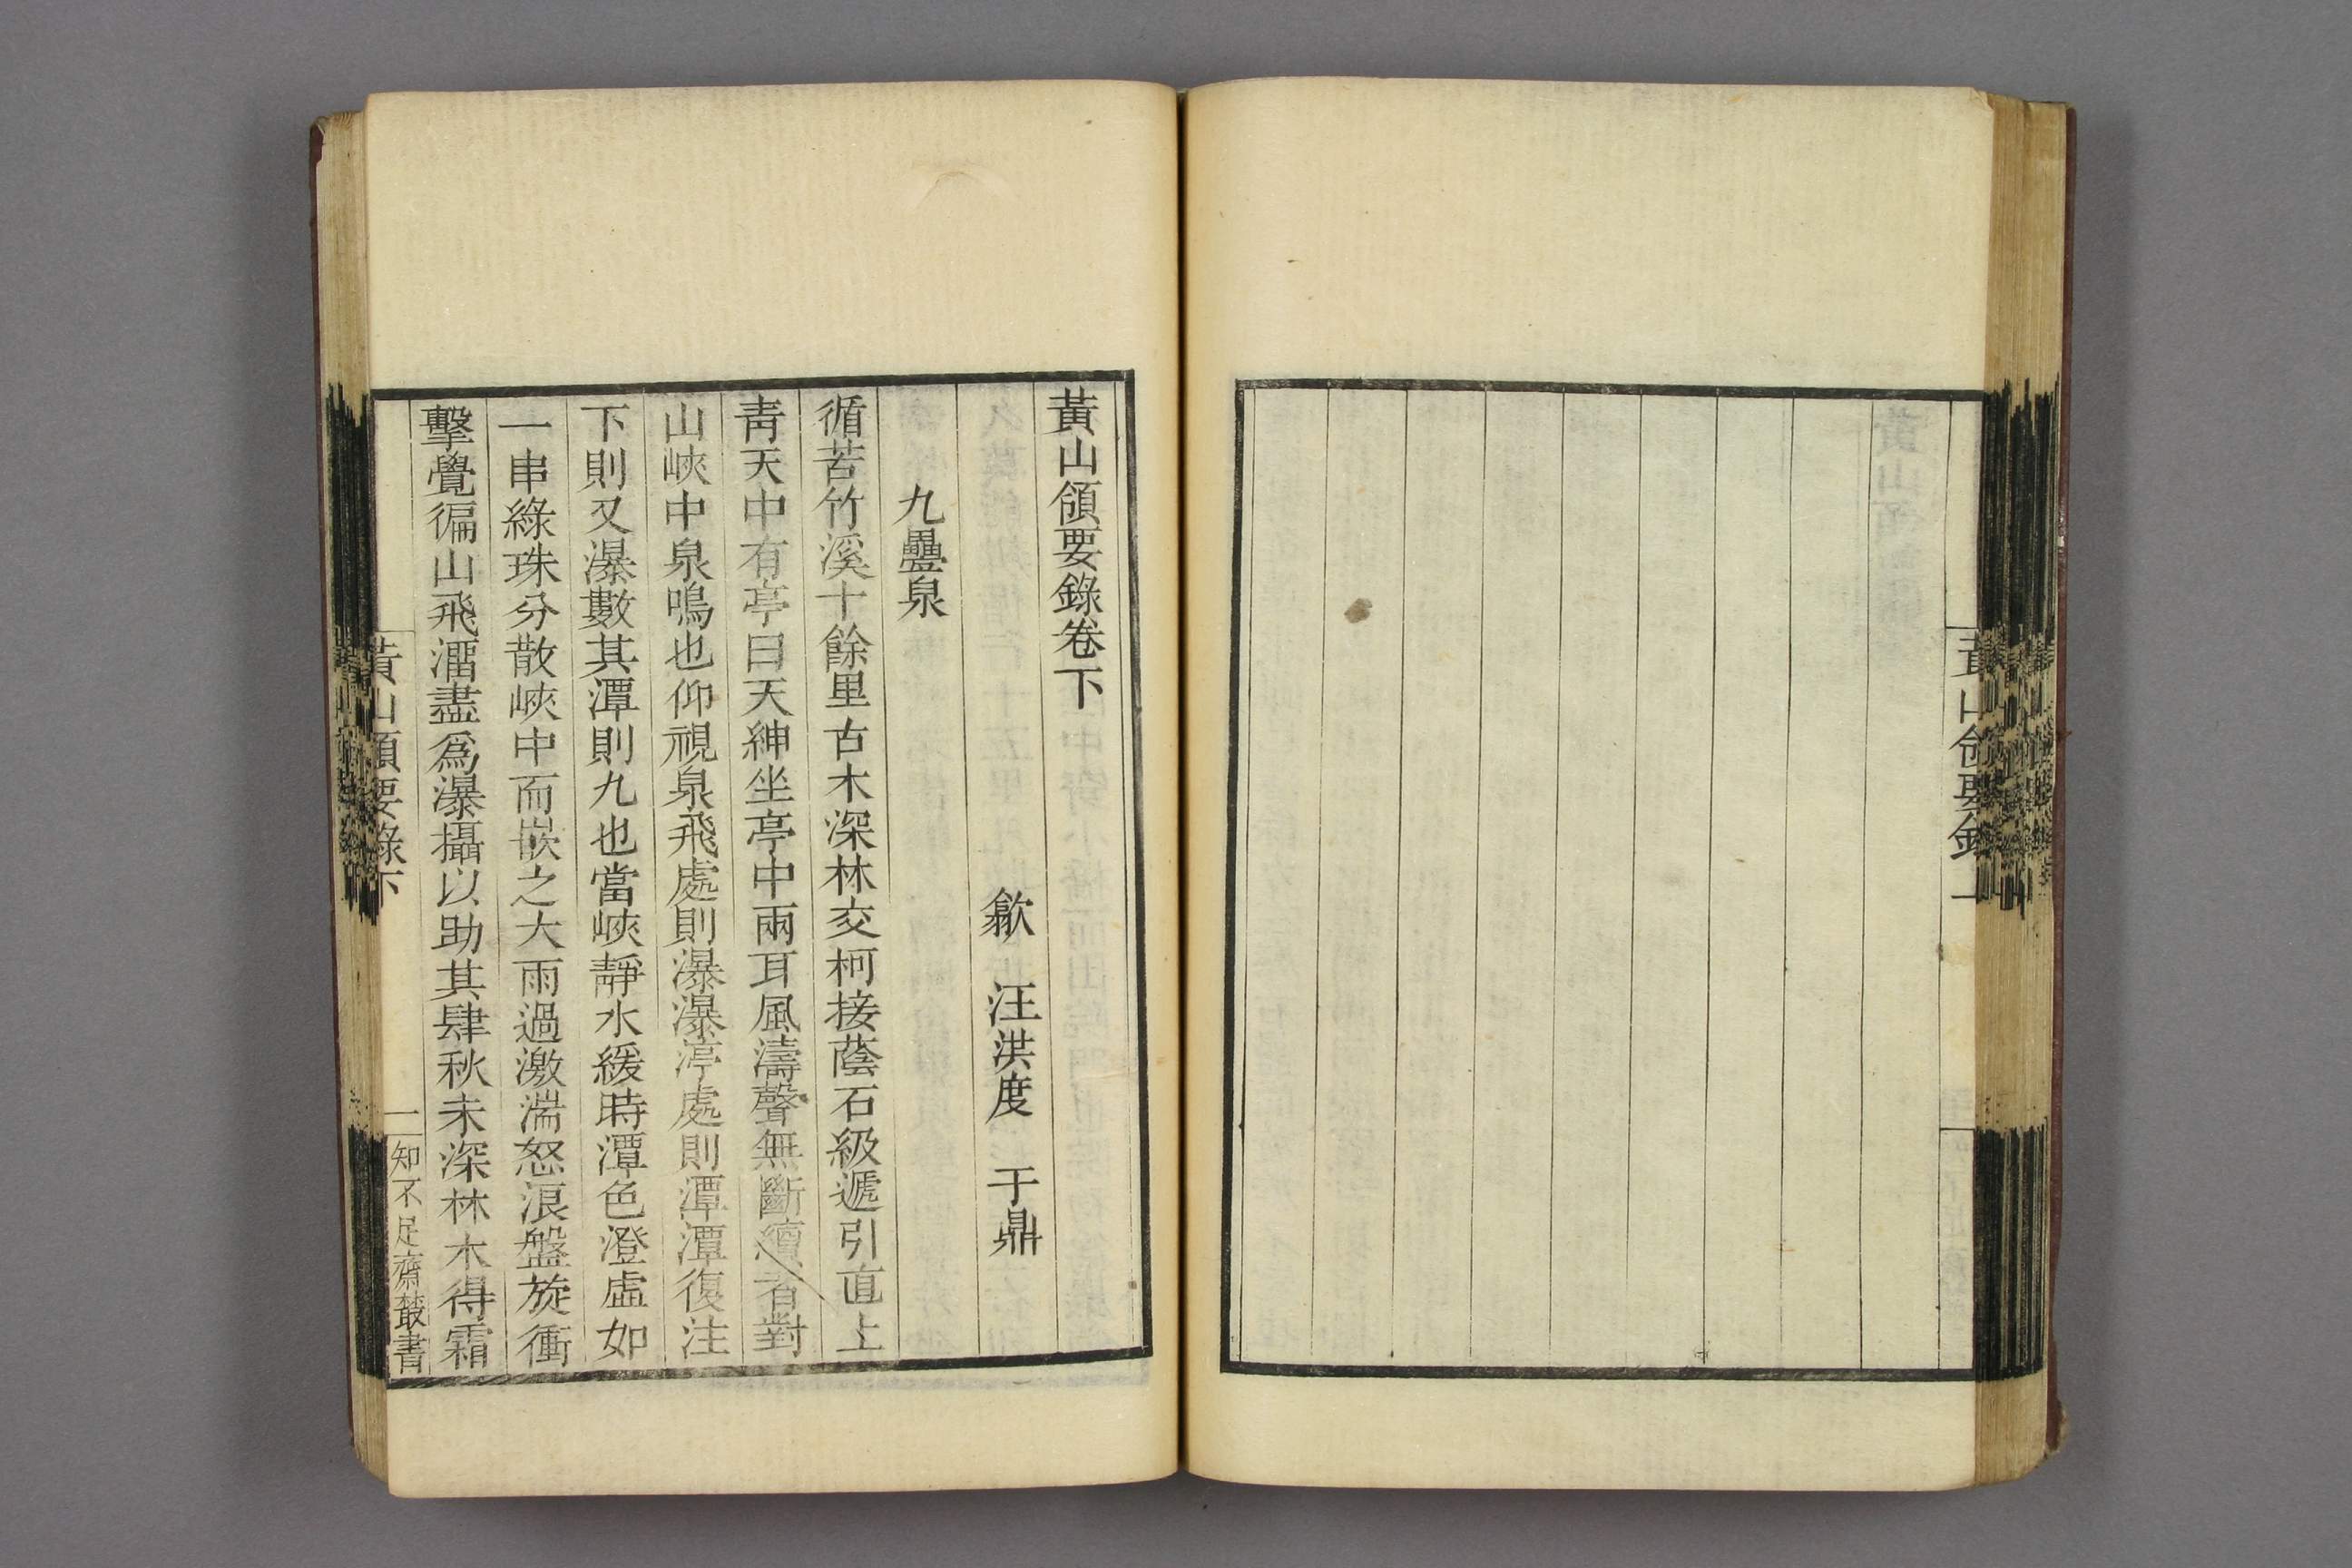 黃山領要錄卷下
歙　汪洪度　于鼎
九疊泉
循苦竹溪十餘里古木深林交柯接蔭石級遞引直上
靑天中有亭曰天紳坐亭中兩耳風濤聲無斷續者對
山峽中泉鳴也仰視泉飛處則瀑瀑渟處則潭潭復注
下則又瀑數其潭則九也當峽靜水緩時潭色澄虛如
一串綠珠分散峽中而嵌之大雨過激湍怒浪盤旋衝
擊覺徧山飛溜盡爲瀑攝以助其肆秋未深林木得霜
黃山領要錄下
一
知不足齋叢書